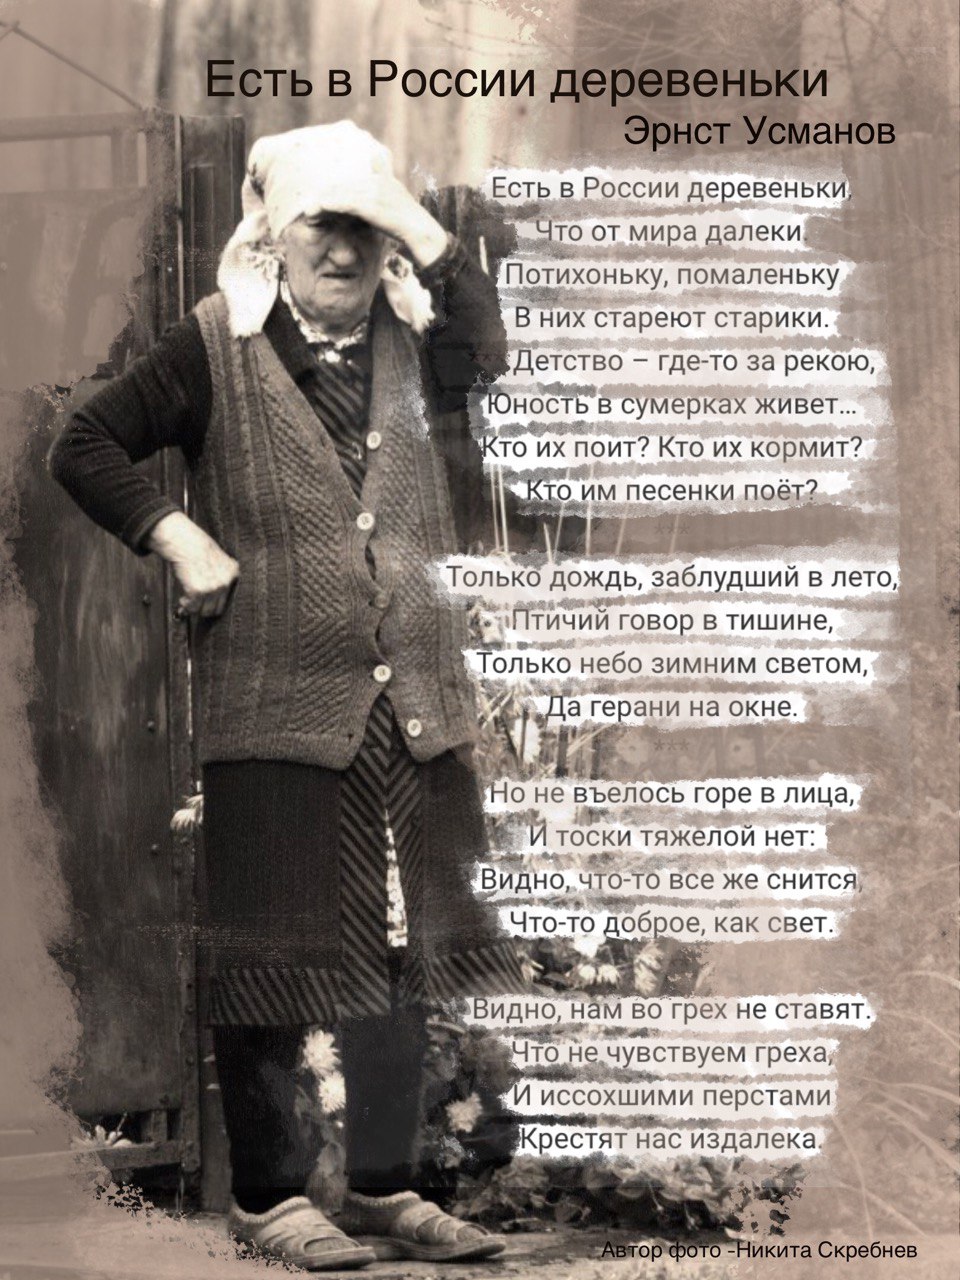 Есть в России деревеньки
Эрнст Усманов
Есть в России деревеньки,
Что от мира далеки.
Потихоньку, помаленьку
В них стареют старики.
***
Детство – где-то за рекою,
Юность в сумерках живет...
Кто их поит? Кто их кормит?
Кто им песенки поёт?
**
Только дождь, заблудший в лето,
Птичий говор в тишине,
Только небо зимним светом,
Да герани на окне.
***
Но не въелось горе в лица,
И тоски тяжелой нет:
Видно, что-то все же снится,
Что-то доброе, как свет.
Видно, нам во грех не ставят.
Что не чувствуем греха,
И иссохшими перстами
Крестят нас издалека.
Автор фото -Никита Скребнев